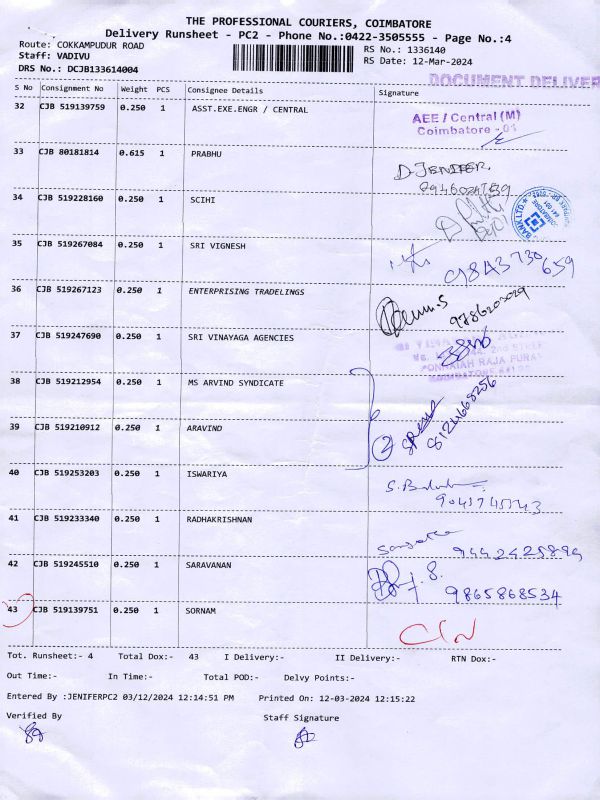 THE PROFESSIONAL COURIERS, COIMBATORE
Delivery Runsheet - PC2 - Phone No.:0422-3505555 - Page No.:4
Route: COKKAMPUDUR ROAD
Staff: VADIVU
DRS No.: DCJB133614004
RS No.: 1336140
RS Date: 12-Mar-2024
DOCUMENT DELIVER
S No Consignment No Weight PCS Consignee Details Signature
32 CJB 519139759 0.250 1 ASST.EXE.ENGR / CENTRAL
AEE / Central (M)
Coimbatore - 01
33 CJB 80181814 0.615 1 PRABHU
D. JENIFER.
34 CJB 519228160 0.250 1 SCIHI
BANK LTD.
35 CJB 519267084 0.250 1 SRI VIGNESH
9843730659
36 CJB 519267123 0.250 1 ENTERPRISING TRADELINGS
9786203029
37 CJB 519247690 1 0.250 SRI VINAYAGA AGENCIES
PONNAIAH RAJA PURA
38 CJB 519212954 0.250 1 MS ARVIND SYNDICATE
39 CJB 519210912 0.250 1 ARAVIND
2
8124668256
40 CJB 519253203 0.250 1 ISWARIYA
41 CJB 519233340 0.250 1 RADHAKRISHNAN
42 CJB 519245510 0.250 1 SARAVANAN
9865868534
43 CJB 519139751 0.250 1 SORNAM
Tot. Runsheet:- 4 Total Dox:- 43 I Delivery:- II Delivery:- RTN Dox:-
Out Time:- In Time:- Total POD:- Delvy Points:-
Entered By :JENIFERPC2 03/12/2024 12:14:51 PM Printed On: 12-03-2024 12:15:22
Verified By Staff Signature